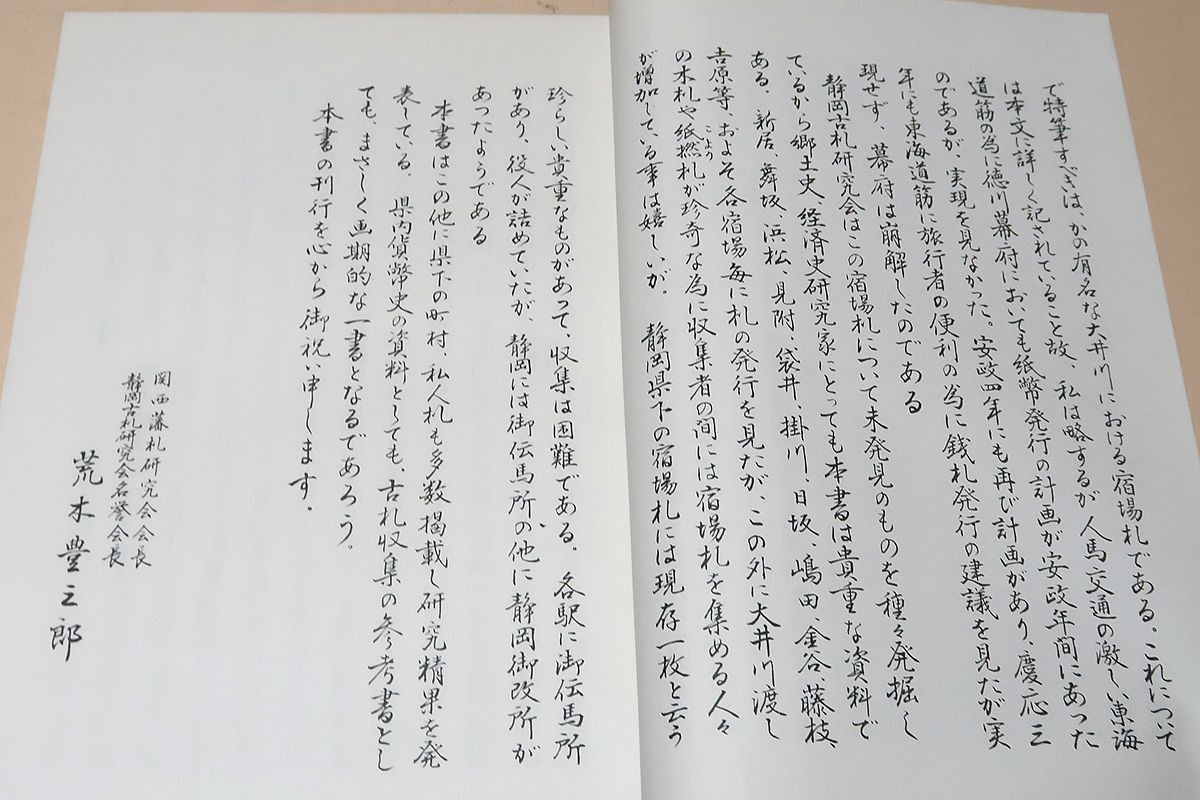 で特筆すべきは、かの有名な大井川における宿場札である。これについて
は本文に詳しく記されていること故、私は略するが人馬交通の激しい東海
道筋の為に徳川幕府においても紙幣発行の計画が安政年間にあった
のであるが、実現を見なかった。安政四年にも再び計画があり、慶応三
年にも東海道筋に旅行者の便利の為に銭札発行の建議を見たが実
現せず、幕府は崩解したのである
静岡古札研究会はこの宿場札について未発見のものを種々発掘し
ているから郷土史、経済史研究家にとっても本書は貴重な資料で
ある。新居、舞坂、浜松、見附、袋井、掛川、日坂、嶋田、金谷、藤枝、
吉原等、およそ各宿場毎に札の発行を見たが、この外に大井川渡し
の木札や紙撚札が珍奇な為に収集者の間には宿場札を集める人々
こより
が増加している事は嬉しいが。静岡県下の宿場札には現存一枚と云う
珍らしい貴重なものがあって、収集は困難である。各駅に御伝馬所
があり、役人が詰めていたが、静岡には御伝馬所の、他に静岡御改所が
あったようである
本書はこの他に県下の町村、私人札も多数掲載し研究精果を発
表している。県内貨幣史の資料としても、古札収集の参考書とし
ても、まさしく画期的な一書となるであろう。
本書の刊行を心から御祝い申します。
関西藩札研究会会長
静岡古札研究会名誉会長
荒木豊三郎